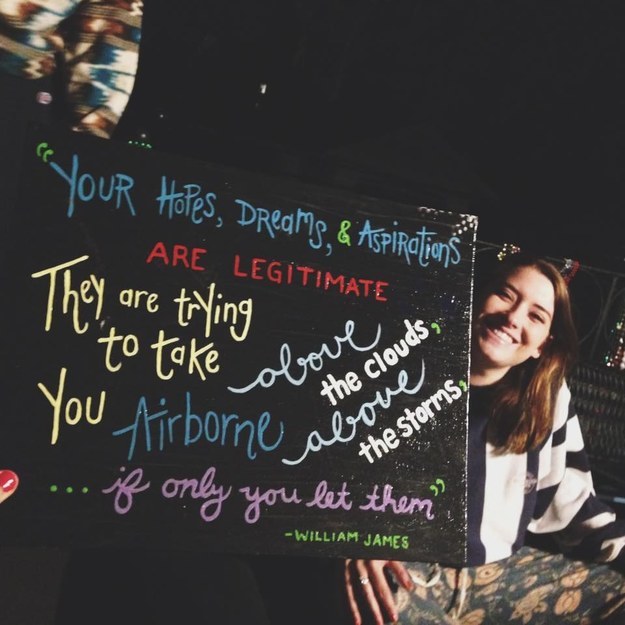 "YOUR HOPES, DREAMS, & ASPIRATIONS
ARE LEGITIMATE
They are trying
to take
You Airborne
above
the clouds,
above
the storms,
... if only you let them"
-WILLIAM JAMES